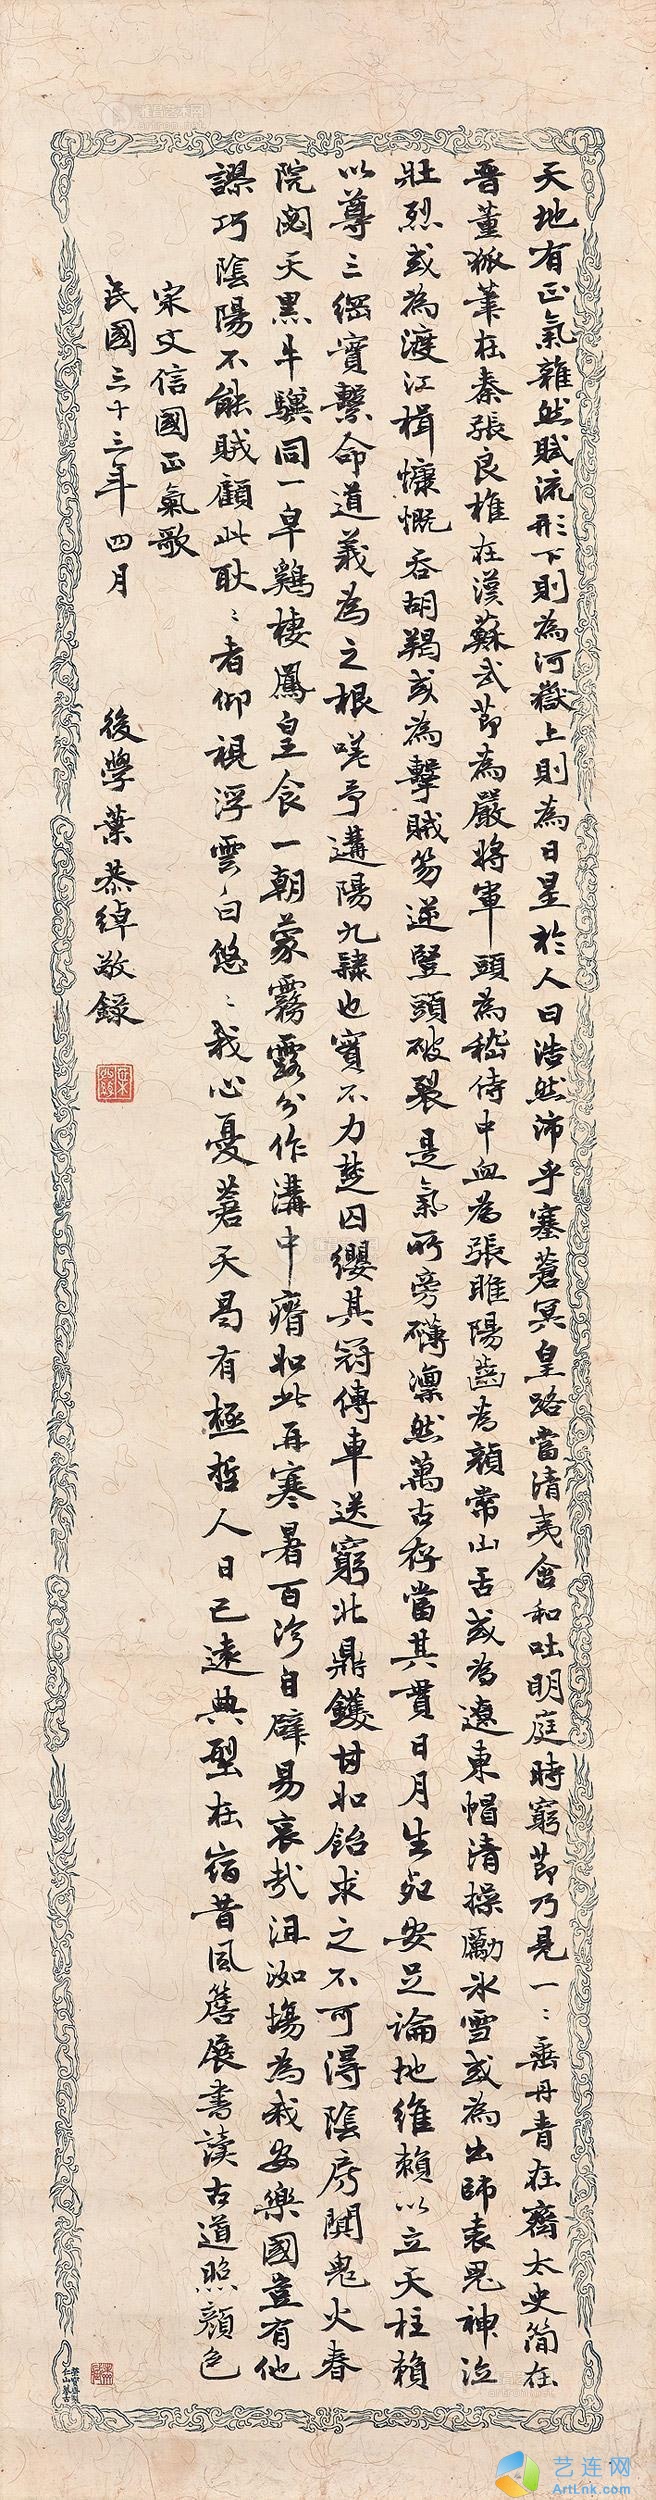 天地有正氣雜然賦流形下則為河嶽上則為日星於人曰浩然沛乎塞蒼冥皇路當清夷含和吐明庭時窮節乃見一〻垂丹青在齊太史簡在
晉董狐筆在秦張良椎在漢蘇武節為嚴將軍頭為嵇侍中血為張睢陽齒為顏常山舌或為遼東帽清操勵冰雪或為出師表鬼神泣
壯烈或為渡江楫慷慨吞胡羯或為擊賊笏逆豎頭破裂是氣所旁礴凜然萬古存當其貫日月生死安足論地維賴以立天柱賴
以尊三綱實繫命道義為之根嗟予遘陽九隸也實不力楚囚纓其冠傳車送窮北鼎鑊甘如飴求之不可得陰房闃鬼火春
院閟天黑牛驥同一皁雞棲鳳皇食一朝蒙霧露分作溝中瘠如此再寒暑百沴自辟易哀哉沮洳場為我安樂國豈有他
謬巧陰陽不能賊顧此耿〻者仰視浮雲白悠〻我心憂蒼天曷有極哲人日已遠典型在宿昔風簷展書讀古道照顏色
宋文信國正氣歌
民國三十三年四月
後學葉恭綽敬錄
艺连网
ArtLnk.com